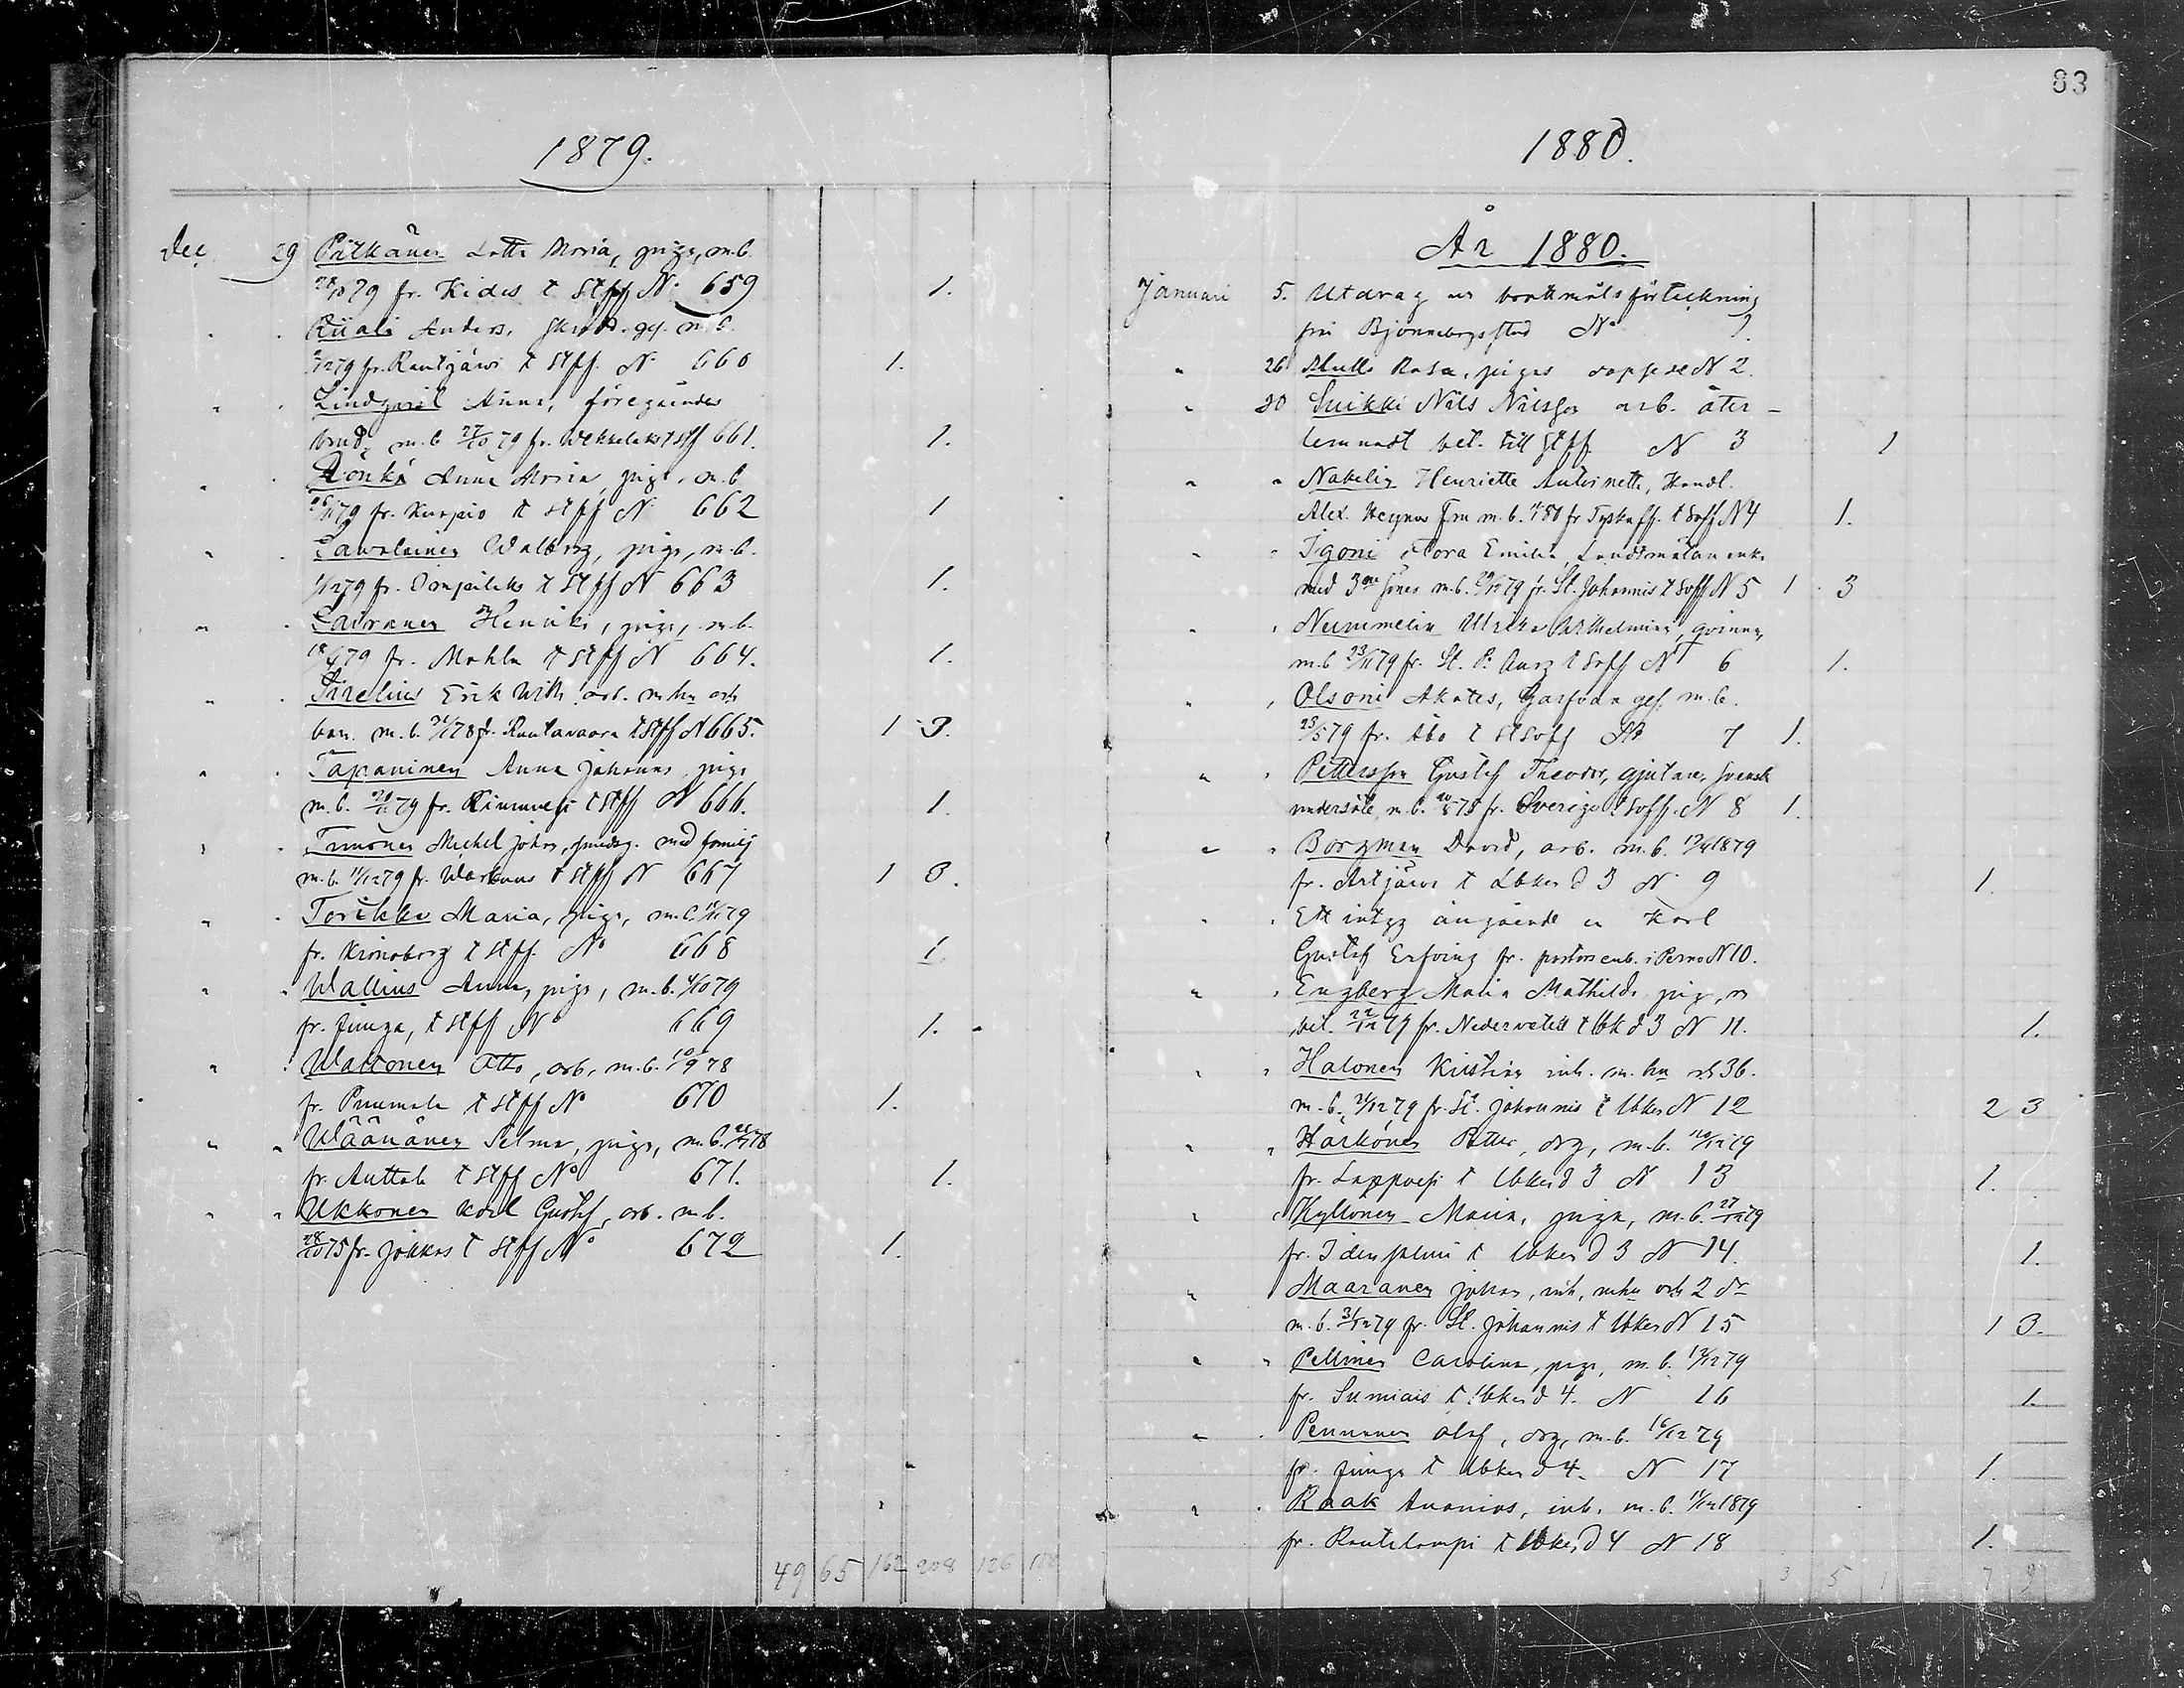 83
1879.
Dec. 29 Pitkänen Lotta Maria, piga, m.b.
28/10 79 fr. Kides t Stff No 659 1.
" " Riiali Anders, m.b.
79 fr. Rautjärvi t Stff. N 660 1.
" " Lindqvist Anna, föregåendes
m.b 27/10 79 fr. t Stff 661. 1.
" " Rönkä Anna Maria, piga, m.b
79 fr. Kuopio t Stff N 662 1
" " Savolainen Walborg, piga, m.b.
1/12 79 fr. t Stff N 663 1.
" " Sairanen Henrika, piga, m.b.
79 fr. Mohla t Stff N 664. 1.
" " Sirelius Erik Wilh. arb. m hu och
barn. m.b. 78 fr. Rautavaara t Stff N 665. 1 3.
" " Tapaninen Anna Johanna piga
m.b. 79 fr. t Stff N 666. 1.
" " Timonen Michel Johan, smedsg. med familj
m.b. 11/12 79 fr. Warkaus t Stff N 667 1 3.
" " Torikka Maria, piga, m.b. 79
fr. Kronoborg t Stff. No 668 1.
" " Wallius Anna, piga, m.b. 4/10 79
fr. Junga, t Stff No 669 1.
" " Wattonen Otto, arb. m.b. 10/9 78
fr. Puumala t Stff No 670 1.
" " Wäänänen Selma, piga, m.b. 78
fr. Anttola t Stff No 671. 1.
" " Ukkonen Karl Gustaf, arb. m.b.
28/10 75 fr. Jokkas t Stff No 672 1.
49 65 162 208 126
1880.
År 1880.
Januari 5. Utdrag ur förteckning
från Björneborgs stad No 1.
" 26 Rosa, pigas N 2.
" 30 Suikki Nils Nilsson arb. åter-
lemnadt bet. till Stff N 3 1
" " Nobelin Henriette Antoinette, Handl.
Alex. fru m.b. 80 fr Tyska ff. t Soff N 4 1.
" " Igoni Flora Emilia, Landtmätare enka
med 3ne söner m.b. 79 fr. St. Johannis t Soff N 5 1 3
" " Nummelin Ulrika Wilhelmina, qvinna,
m.b 23/11 79 fr. St. P: Borg t Soff N 6 1.
" " Olsoni Akates, Garfvare ges. m.b.
23/5 79 fr. Åbo t Soff No 7 1.
" " Pettersson Gustaf Theodor, gjutare, svensk
undersåte, m.b. 78 fr. Sverige t Soff. N 8 1.
" " Borgman David, arb. m.b. 1879
fr. Artjärvi t Lbkes d 3 N 9 1.
" " Ett intyg angående en Karl
Gustaf Erfving fr. pastorsemb. i Perno N 10.
" " Engberg Maria Mathilda piga, m
bet. 22/12 79 fr. Nedervetil t lbk d 3 N 11. 1.
" " Halonen Kristian inh. m. hu och 3 b.
m.b. 79 fr. St. Johannis t lbkes N 12 2 3
" " Härkönen Petter, drg, m.b. 79
fr. Lappvesi t lbkes d 3 N 13 1.
" " Kyllönen Maria, piga, m.b. 27/12 79
fr. Idensalmi t lbkes d 3 N 14. 1.
" Maaranen Johan, inh, m hu och 2 dr
m.b. 31/12 79 fr. St. Johannis t lbkes N 15 1 3.
" " Pellinen Carolina, piga, m.b. 79
fr. Sumiais t lbkes d 4. N 16 1.
" " Pennanen Olof, drg, m.b. 16/12 79
fr. Junga t lbkes d 4. N 17 1.
" " Raak Ananias, inh. m.b. 1879
fr. Rautalampi t lbkes d 4 N 18 1.
3 5 1 7 9